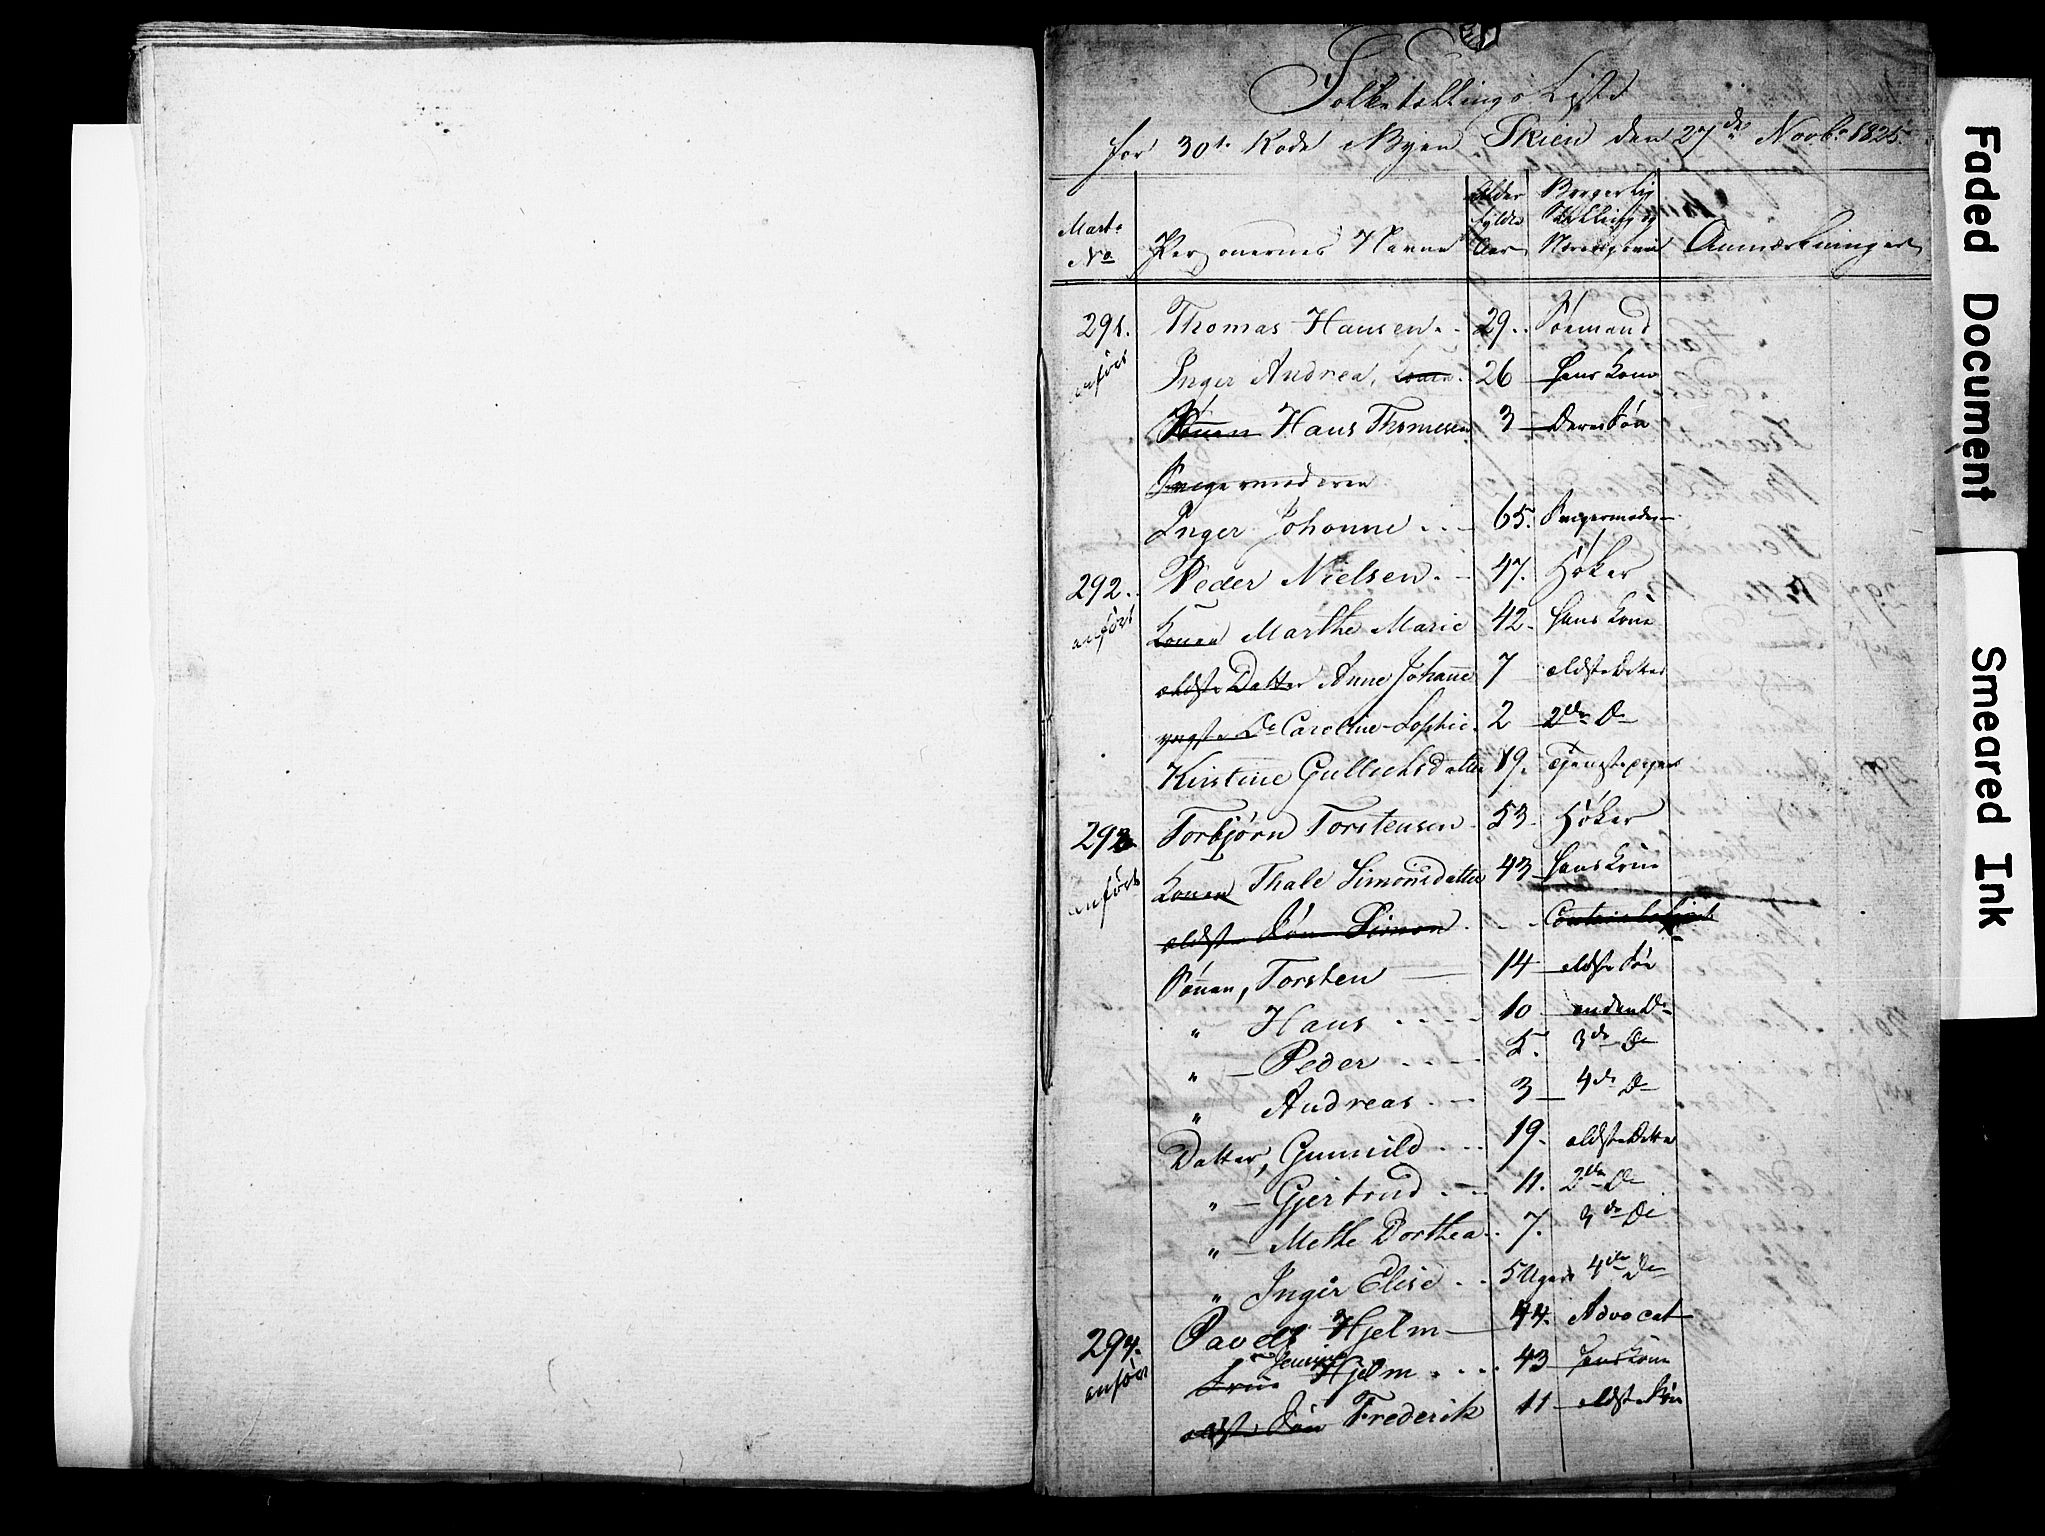 Folketællings Liste
for 30te Rode i Byen Skien den 27de Novbr 1825
Matr. No Personernes Navne Alder fyldte Aar Borgerlig Stilling og Næringsvei Anmærkninger
291. Thomas Hansen 29. Søemand
anført Inger Andrea, Konen 26 Hans Kone
Sønen Hans Thomesen 3 Deres Søn
Svigermoderen
Inger Johanne 65. Svigermoder
292. Peder Nielsen 47. Høker
anført Konen Marthe Marie 42 Hans Kone
ældste Datter Anne Johanne 7 ældste Datter
yngste Do Caroline Sophie 2 2den Do
Kirstine Gullichsdatter 19. Tjenestepige
293 Torbjørn Torstensen 53 Høker
anført Konen Thale Simonsdatter 43 Hans Kone
ældste Søn Simon
Sønen, Torsten 14 ældste Søn
" Hans 10 anden Do
" Peder 5. 3de Do
" Andreas 3 4de Do
Datter, Gunnild 19. ældste Datter
" Gjertrud 11. 2den Do
" Methe Dorthea 7. 3de Do
" Inger Elise 5 Uger 4de Do
294. Pavels Hjelm 44. Advocat
anført Frue Hjelm 43 Hans Kone
ældste Søn Frederik 11 ældste Søn
Faded Document
Smeared Ink